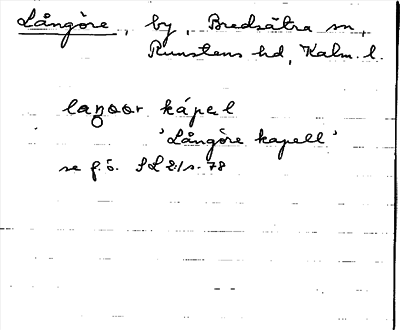 Långöre, by, Bredsätra sn,
Runstens hd, Kalm. l.
langoor kápel
'Långöre kapell'
se f. ö. SL 2:1 s. 78